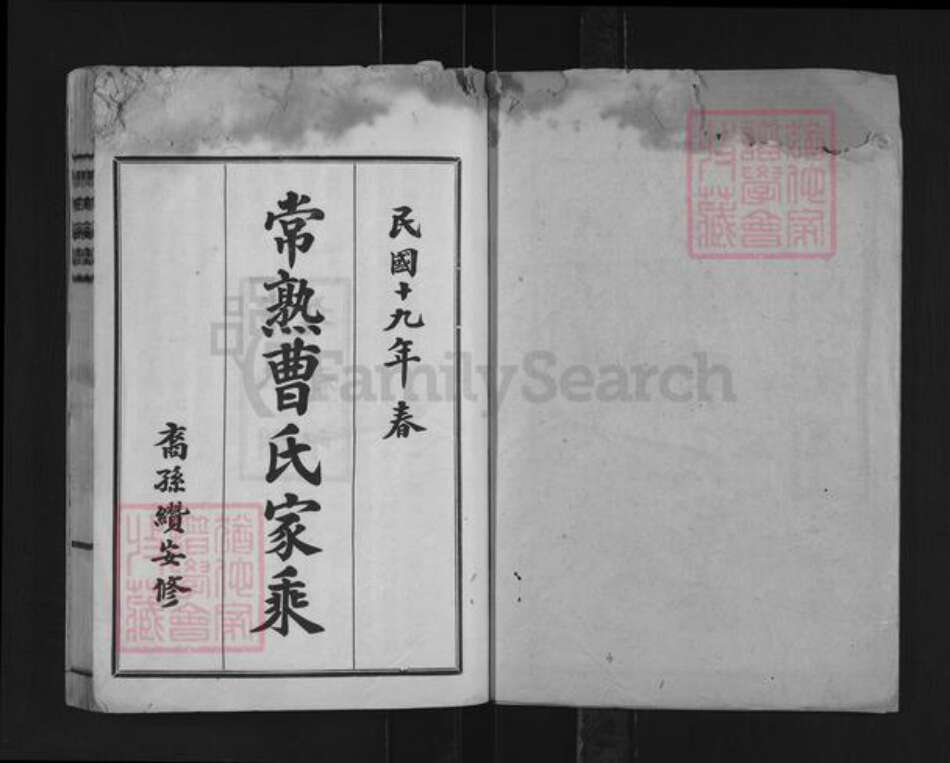 民國十九年春
常熟曹氏家乘
裔孫纘安修
FamilySearch